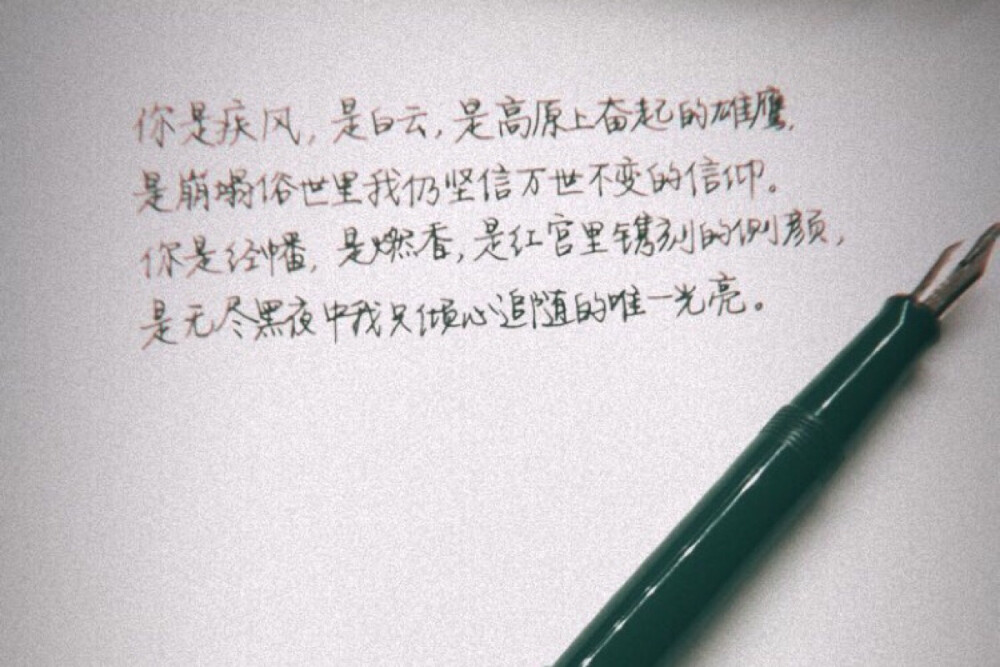 你是疾风,是白云,是高原上奋起的雄鹰,
是崩塌俗世里我仍坚信万世不变的信仰。
你是经幡,是燃香,是红宫里镌刻的侧颜,
是无尽黑夜中我只倾心追随的唯一光亮。